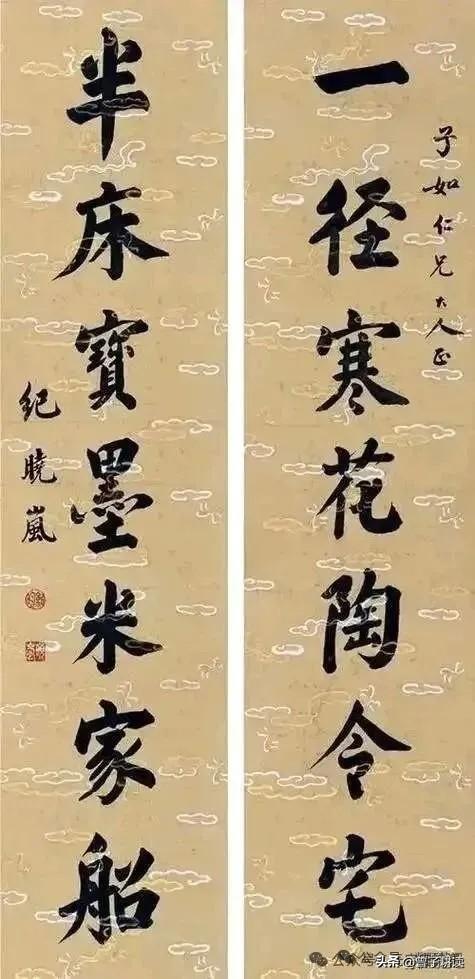 子如仁兄大人正
一径寒花陶令宅
半床寶墨米家船
紀曉嵐